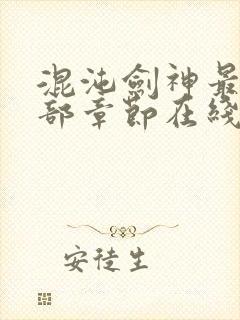 混沌劍神最
部章節在綫
安徒生